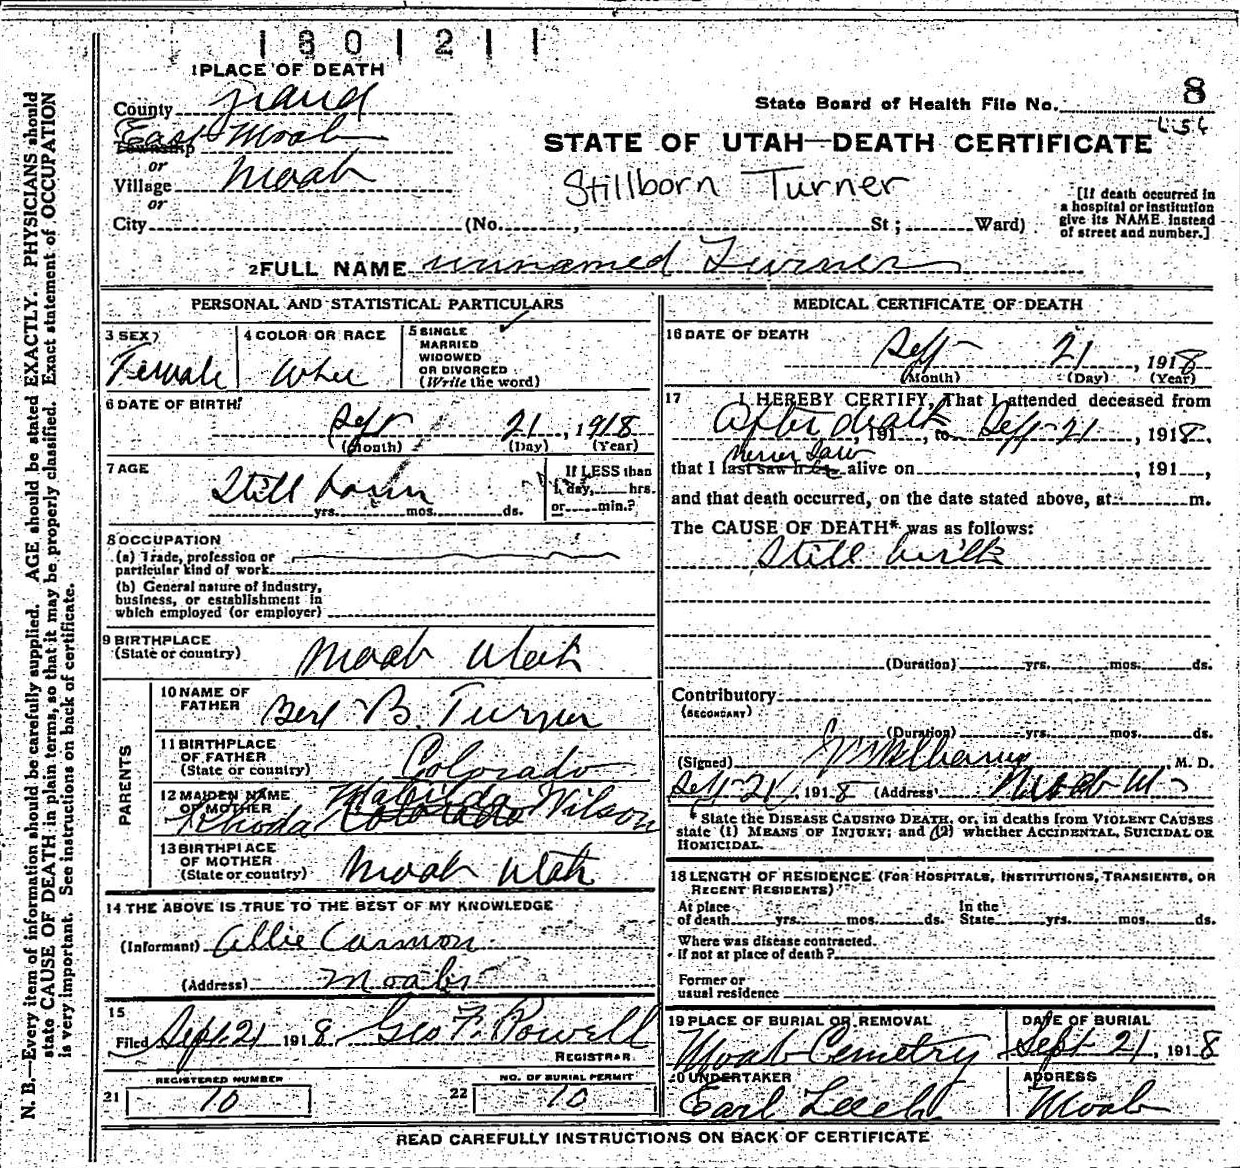 1801211
1 PLACE OF DEATH
County Grand
State Board of Health File No. 8
East Moab
Township
or
Village Moab
or
STATE OF UTAH—DEATH CERTIFICATE
Stillborn Turner
City (No. , St; Ward)
[If death occurred in
a hospital or institution
give its NAME instead
of street and number.]
2 FULL NAME unnamed Turner
PERSONAL AND STATISTICAL PARTICULARS
3 SEX
Female
4 COLOR OR RACE
White
5 SINGLE
MARRIED
WIDOWED
OR DIVORCED
(Write the word)
6 DATE OF BIRTH
Sept 21, 1918
(Month) (Day) (Year)
7 AGE
Still born
yrs. mos. ds.
If LESS than
1 day, hrs.
or min.?
8 OCCUPATION
(a) Trade, profession or
particular kind of work
(b) General nature of industry,
business, or establishment in
which employed (or employer)
9 BIRTHPLACE
(State or country) Moab Utah
PARENTS
10 NAME OF
FATHER Bert B. Turner
11 BIRTHPLACE
OF FATHER
(State or country) Colorado
12 MAIDEN NAME
OF MOTHER
Rhoda Matilda Wilson
Colorado
13 BIRTHPLACE
OF MOTHER
(State or country) Moab Utah
14 THE ABOVE IS TRUE TO THE BEST OF MY KNOWLEDGE
(Informant) Allie Carmon
(Address) Moab
15
Filed Sept. 21 1918 Geo F. Powell
REGISTRAR.
REGISTERED NUMBER
21 10
NO. OF BURIAL PERMIT
22 10
MEDICAL CERTIFICATE OF DEATH
16 DATE OF DEATH
Sept 21, 1918
(Month) (Day) (Year)
17 I HEREBY CERTIFY, That I attended deceased from
After death, 191 , to Sept-21, 1918,
never saw
that I last saw h alive on , 191 ,
and that death occurred, on the date stated above, at m.
The CAUSE OF DEATH* was as follows:
Still birth
(Duration) yrs. mos. ds.
Contributory
(SECONDARY)
(Duration) yrs. mos. ds.
(Signed) M. D.
Sept-21, 1918 (Address) Moab U
* State the DISEASE CAUSING DEATH, or, in deaths from VIOLENT CAUSES
state (1) MEANS OF INJURY; and (2) whether ACCIDENTAL, SUICIDAL OR
HOMICIDAL.
18 LENGTH OF RESIDENCE (FOR HOSPITALS, INSTITUTIONS, TRANSIENTS, OR
RECENT RESIDENTS)
At place
of death yrs. mos. ds.
In the
State yrs. mos. ds.
Where was disease contracted.
if not at place of death?
Former or
usual residence
19 PLACE OF BURIAL OR REMOVAL
Moab Cemetry
DATE OF BURIAL
Sept 21, 1918
20 UNDERTAKER
Earl Leech
ADDRESS
Moab
READ CAREFULLY INSTRUCTIONS ON BACK OF CERTIFICATE
N. B.—Every item of information should be carefully supplied. AGE should be stated EXACTLY. PHYSICIANS should
state CAUSE OF DEATH in plain terms, so that it may be properly classified. Exact statement of OCCUPATION
is very important. See instructions on back of certificate.